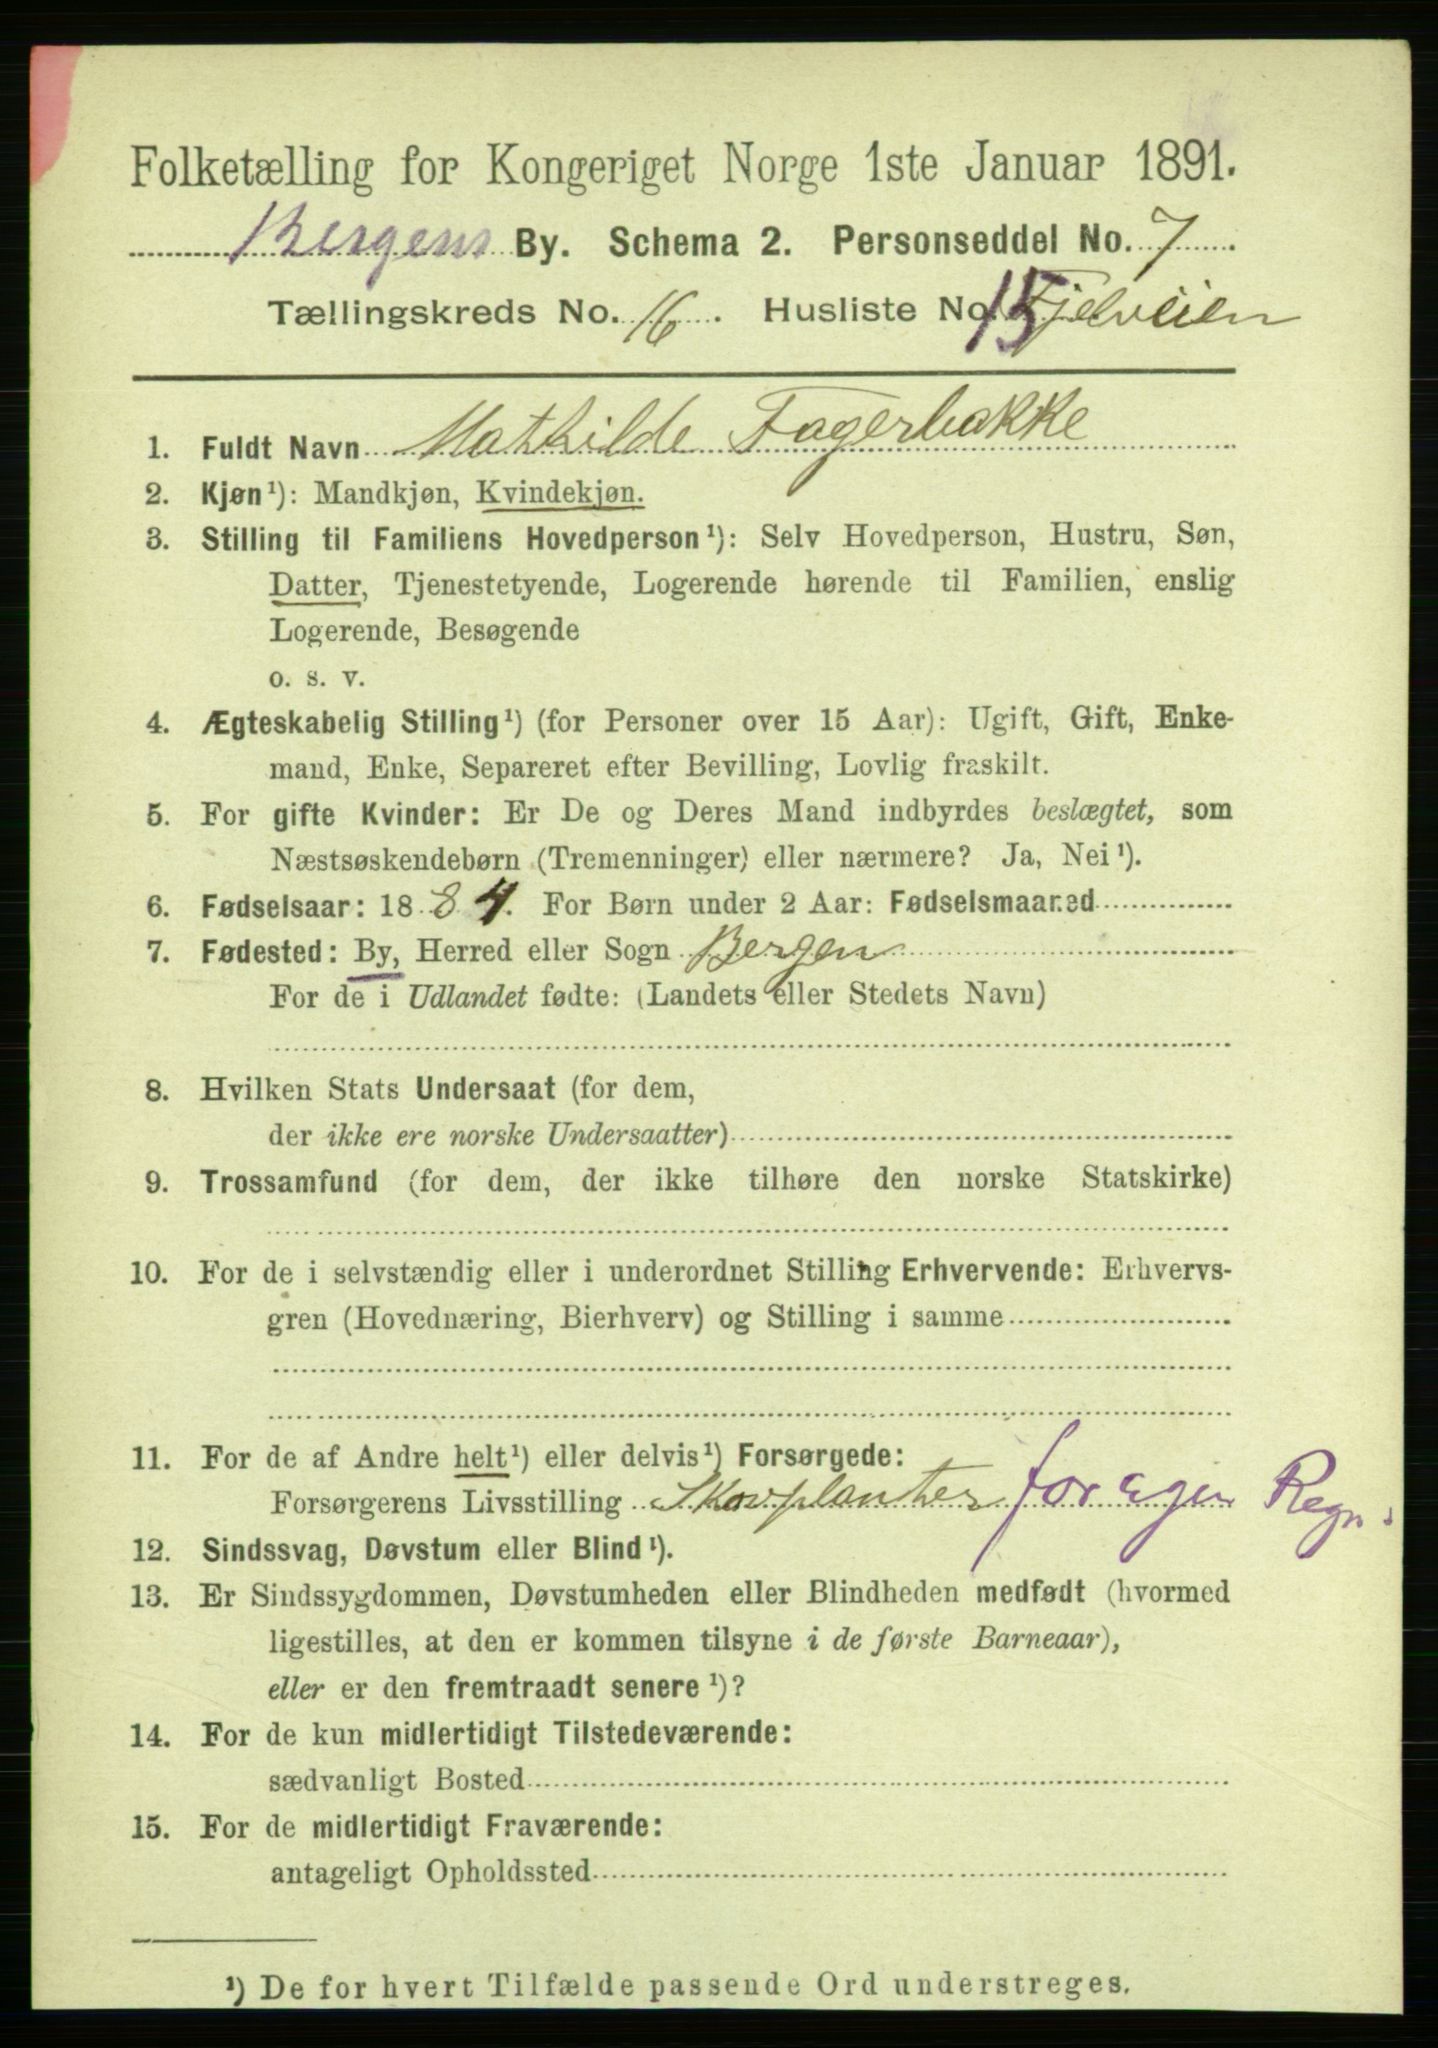 Folketælling for Kongeriget Norge 1ste Januar 1891.
Bergens By. Schema 2. Personseddel No. 7.
Tællingskreds No. 16. Husliste No. 15 Fjelveien
1. Fuldt Navn Mathilde Fagerbakke
2. Kjøn¹): Mandkjøn, Kvindekjøn.
3. Stilling til Familiens Hovedperson¹): Selv Hovedperson, Hustru, Søn,
Datter, Tjenestetyende, Logerende hørende til Familien, enslig
Logerende, Besøgende
o. s. v.
4. Ægteskabelig Stilling¹) (for Personer over 15 Aar): Ugift, Gift, Enke-
mand, Enke, Separeret efter Bevilling, Lovlig fraskilt.
5. For gifte Kvinder: Er De og Deres Mand indbyrdes beslægtet, som
Næstsøskendebørn (Tremenninger) eller nærmere? Ja, Nei¹).
6. Fødselsaar: 1884. For Børn under 2 Aar: Fødselsmaaned
7. Fødested: By, Herred eller Sogn Bergen
For de i Udlandet fødte: (Landets eller Stedets Navn)
8. Hvilken Stats Undersaat (for dem,
der ikke ere norske Undersaatter)
9. Trossamfund (for dem, der ikke tilhøre den norske Statskirke)
10. For de i selvstændig eller i underordnet Stilling Erhvervende: Erhvervs-
gren (Hovednæring, Bierhverv) og Stilling i samme
11. For de af Andre helt¹) eller delvis¹) Forsørgede:
Forsørgerens Livsstilling Skovplanter for egen Regn.
12. Sindssvag, Døvstum eller Blind¹).
13. Er Sindssygdommen, Døvstumheden eller Blindheden medfødt (hvormed
ligestilles, at den er kommen tilsyne i de første Barneaar),
eller er den fremtraadt senere¹)?
14. For de kun midlertidigt Tilstedeværende:
sædvanligt Bosted
15. For de midlertidigt Fraværende:
antageligt Opholdssted
¹) De for hvert Tilfælde passende Ord understreges.